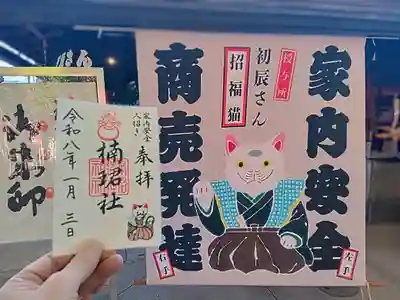 家内安全
授与所
初辰さん
招福猫
商売発達
右手
左手
家内安全
人招き
奉拝
楠珺社
令和八年一月三日
御朱印